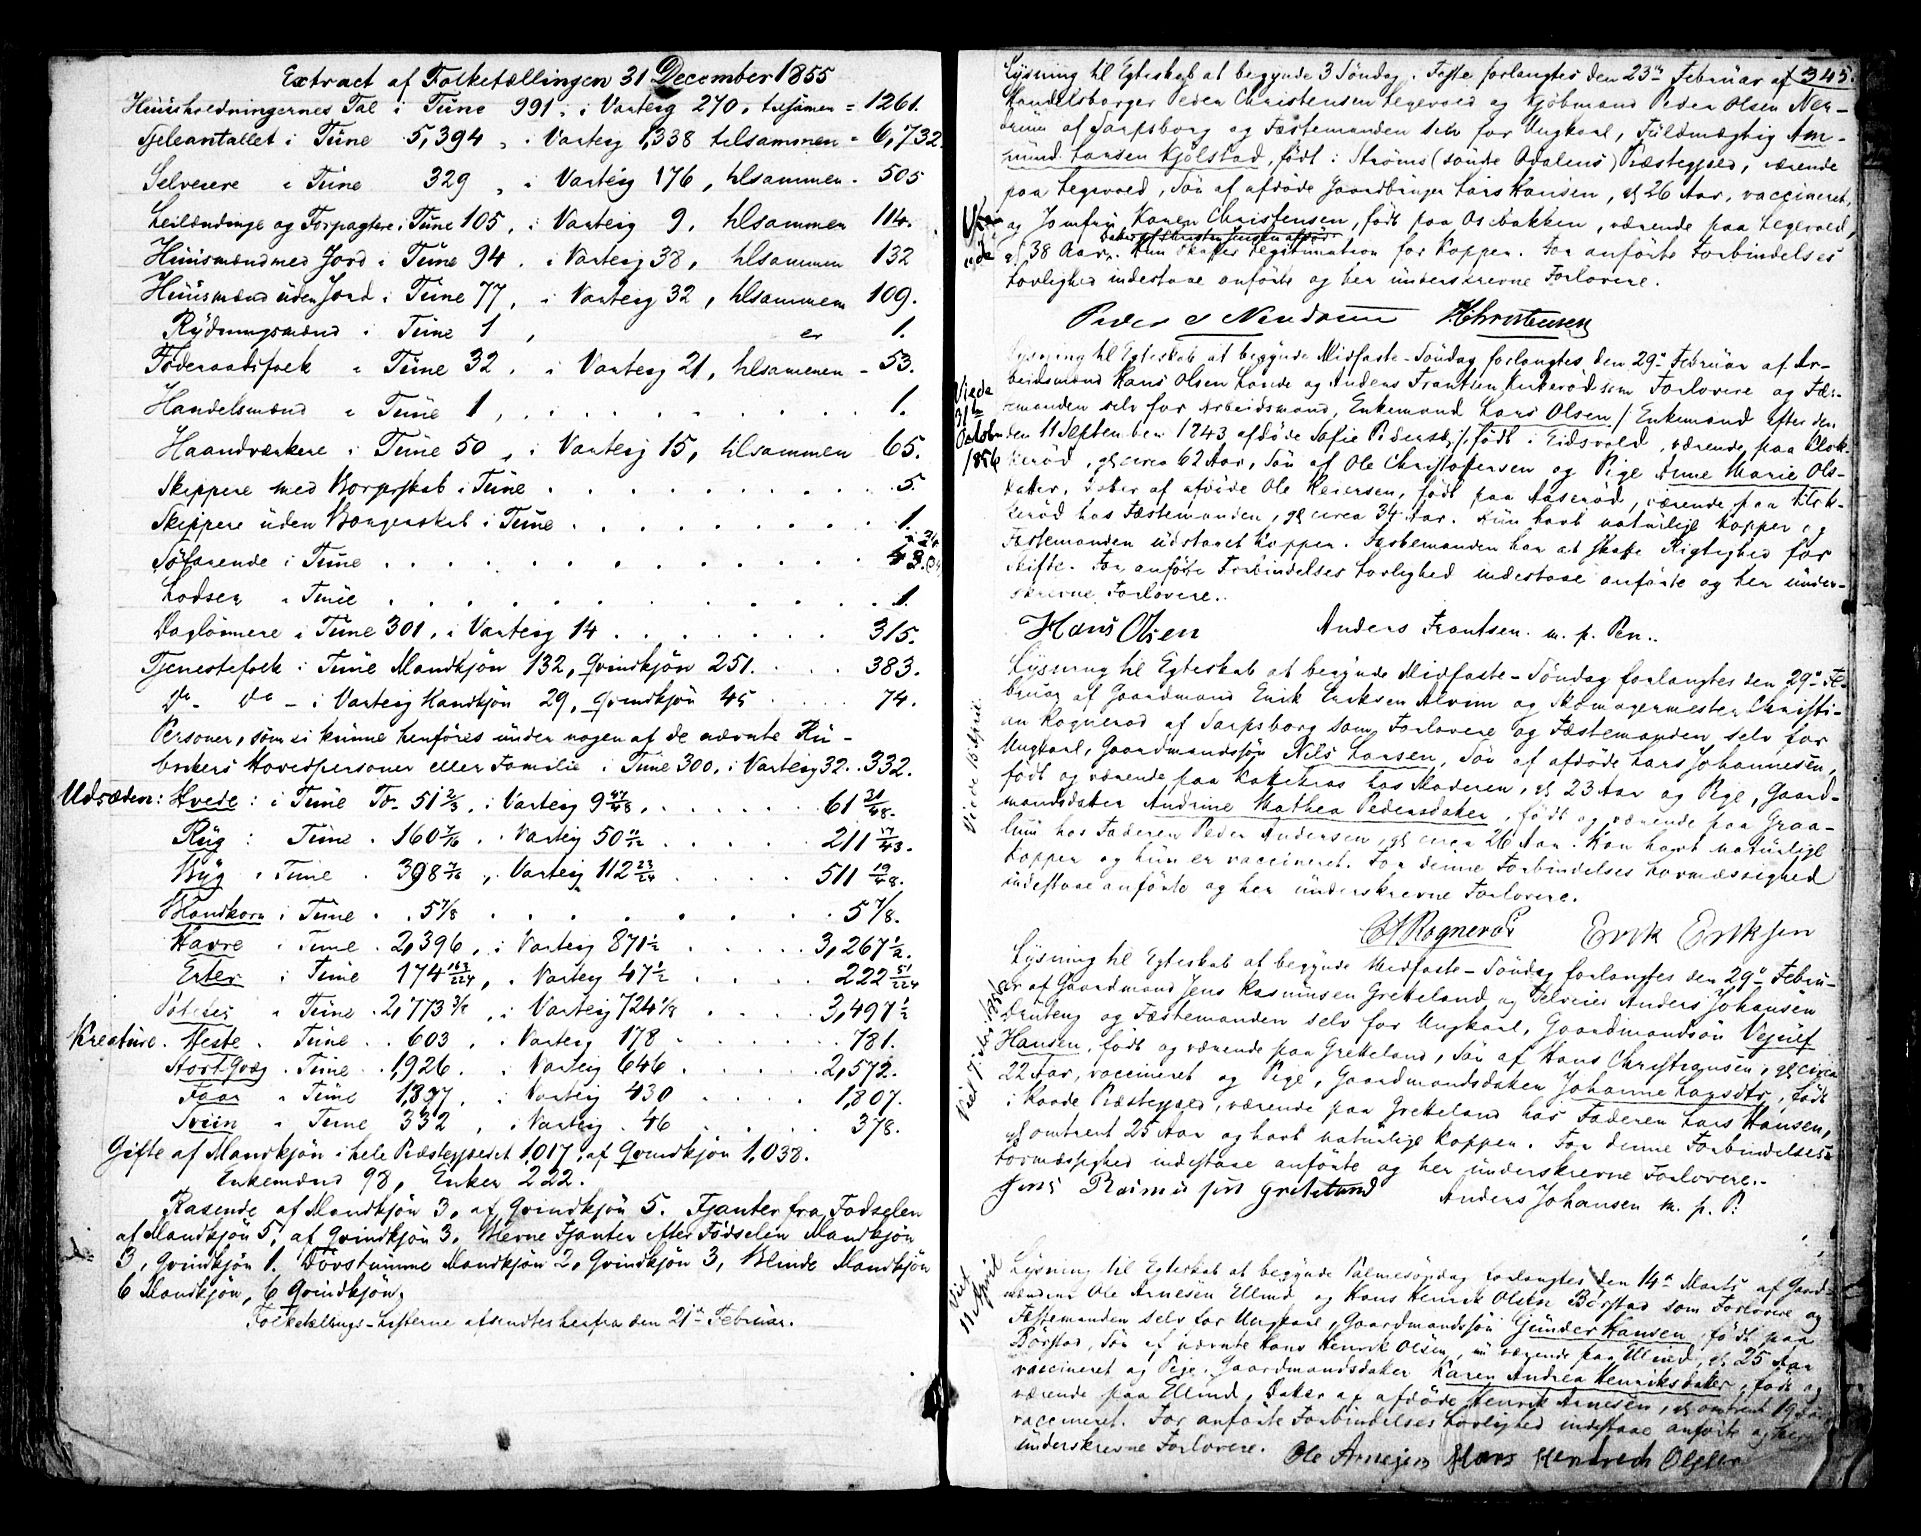 Extract af Folketællingen 31 December 1855
Huusholdningernes Tal i Tune 991, i Varteig 270, tilsamen = 1261.
Sjeleantallet i Tune 5,394, i Varteig 1,338 tilsammen = 6,732.
Selveiere i Tune 329, i Varteig 176, tilsammen - 505
Leilændinge og Forpagtere i Tune 105, i Varteig 9, tilsammen 114.
Huusmænd med Jord i Tune 94, i Varteig 38, tilsammen 132
Huusmænd uden Jord i Tune 77, i Varteig 32, tilsammen 109.
Rydningsmænd i Tune 1, er 1.
Føderaadsfolk i Tune 32, i Varteig 21, tilsamenen - 53.
Handelsmænd i Tune 1, . . . 1.
Haandværkere i Tune 50, i Varteig 15, tilsammen 65.
Skippere med Borgerskab i Tune . . . 5.
Skippere uden Borgerskab i Tune . . . 1.
Søfarende i Tune . . . 43.
Lodser i Tune . . . 1.
Daglønnere i Tune 301, i Varteig 14 . . . 315.
Tjenestefolk i Tune Mandkjön 132, Qvindkjön 251. . . . 383.
do - do - i Varteig Mandkjön 29, Qvindkjön 45 . . . 74.
Personer, som ei kunne henföres under nogen af de nævnte Ru-
brikers Hovedpersoner eller Familie i Tune 300, i Varteig 32. . 332.
Udsæden: Hvede: i Tune Tr. 51 2/3, i Varteig 9 47/48, . . . 61 31/48.
Rug: Tune . 160 7/16, Varteig 50 11/12 . . . 211 17/48.
Byg i Tune . 398 7/16, Varteig 112 23/24 . . . 511 19/48.
Blandkorn i Tune . . 5 7/8 . . . 5 7/8.
Havre i Tune . 2,396, i Varteig 871 1/2 . . . 3,267 1/2.
Erter i Tune 174 163/224, Varteig 47 1/2 . . . 222 51/224
Poteter i Tune . 2,773 3/8, i Varteig 724 1/8 . . . 3,497 1/2
Kreature. Heste . Tune . . 603, Varteig 178 . . . 781.
Stort Qvæg . Tune . . 1,926. Varteig 646 . . . 2,572.
Faar i Tune 1,377, i Varteig 430 . . . 1,807.
Sviin i Tune 332, i Varteig . 46 . . . 378.
Gifte af Mandkjön i hele Præstegjeldet 1,017, af Qvindkjön 1,038.
Enkemænd 98, Enker 222.
Rasende af Mandkjön 3, af Qvindkjön 5. Fjanter fra Fødselen
af Mandkjön 5, af Qvindkjön 3. Blevne Fjanter efter Fødselen Mandkjön
3, Qvindkjön 1. Dövstumme Mandkjön 2, Qvindkjön 3, Blinde Mandkjön
6 Mandkjön, 6 Qvindkjön.
Folketællings-Listerne afsendtes herfra den 21de Februar.
345.
Lysning til Egteskab at begynde 3 Söndag i Faste forlangtes den 23de Februar af
Handelsborger Peder Christensen Legevold og Kjöbmand Peder Olsen Nen-
drum af Sarpsborg og Fæstemanden selv for Ungkarl, Fuldmægtig Am-
mund Larsen Kjölstad, födt i Ströms (söndre Odalens) Præstegjeld, værende
paa Legevold, Sön af afdöde Gaardbruger Lars Hansen, gl 26 Aar, vaccineret,
og Jomfru Karen Christensen, födt paa Os bakken, værende paa Legevold,
Datter af Christen Jensen afdöd
gl 38 Aar. Hun skaffer Legitimation for Kopper. For anförte Forbindelses
Lovlighed indestaae anförte og her underskrevne Forlovere.
Peder O Nendrum Christensen
Lysning til Egteskab at begynde Midfaste-Söndag forlangtes den 29de Februar af Ar-
beidsmænd Hans Olsen Lande og Anders Frantsen Kirkeröd som Forlovere og Fæ-
stemanden selv for Arbeidsmand, Enkemand Lars Olsen / Enkemand efter den
den 11 September 1843 afdöde Sofie Pedersdr / födt i Eidsvold, værende paa Klok-
keröd, gl circa 62 Aar, Sön af Ole Christofersen og Pige Anne Marie Ols-
datter, Datter af afdöde Ole Reiersen, födt paa Aaseröd, værende paa Klok-
keröd hos Fæstemanden, gl circa 34 Aar. Hun havt naturlige Kopper og
Fæstemanden udstaaet Kopper. Fæstemanden har at skaffe Rigtighed for
Skifte. For anförte Forbindelses Lovlighed indestaae anförte og her under-
skrevne Forlovere.
Viede
31te
Octobr
1856
Hans Olsen Anders Frantsen. m. p. Pen..
Lysning til Egteskab at begynde Midfaste-Söndag forlangtes den 29de Fe-
bruar af Gaardmand Erik Eriksen Alvim og Skomagermester Christi-
an Rogneröd af Sarpsborg som Forlovere og Fæstemanden selv for
Ungkarl, Gaardmandssön Nils Larsen, Sön af afdöde Lars Johannesen,
födt og værende paa hos Moderen, gl 23 Aar og Pige, Gaard-
mandsdatter Andrine Mathea Pedersdatter, födt og værende paa Graa-
lum hos Faderen Peder Andersen, gl circa 26 Aar. Han havt naturlige
Kopper og hun er vaccineret. For denne Forbindelses Lovmæssighed
indestaae anförte og her underskrevne Forlovere.
Viede 18 April
Rogneröd Erik Eriksen
Lysning til Egteskab at begynde Midfaste-Söndag forlangtes den 29de Febru-
ar af Gaardmand Jens Rasmusen Grekeland og Selveier Anders Johansen
og Fæstemanden selv for Ungkarl, Gaardmandssön
Hansen, födt og værende paa Grekeland, Sön af Hans Christiansen, gl circa
22 Aar, vaccineret og Pige, Gaardmandsdatter Johanne Larsdtr, födt
i Raade Præstegjeld, værende paa Grekeland hos Faderen Lars Hansen,
gl omtrent 25 Aar og havt naturlige Kopper. For denne Forbindelses
Lovmæssighed indestaae anförte og her underskrevne Forlovere.
Jens Rasmusen Grekeland Anders Johansen m. p. P.
Lysning til Egteskab at begynde Palmesöndag forlangtes den 14de Marts af Gaard-
mændene Ole Arnesen Ellind og Hans Henrik Olsen Börstad som Forlovere og
Fæstemanden selv for Ungkarl, Gaardmandssön Gunder Hansen, födt paa
Börstad, Sön af nævnte Hans Henrik Olsen, nu værende paa Ellind, gl 25 Aar
vaccineret og Pige, Gaardmandsdatter Karen Andrea Henriksdatter, födt og
værende paa Ellind, Datter af afdöde Henrik Arnesen, gl omtrent 19 Aar
vaccineret. For anförte Forbindelses Lovlighed indestaae anförte og her
underskrevne Forlovere.
Viet
11 April
Ole Arnesen Hans Hendrech Olsen